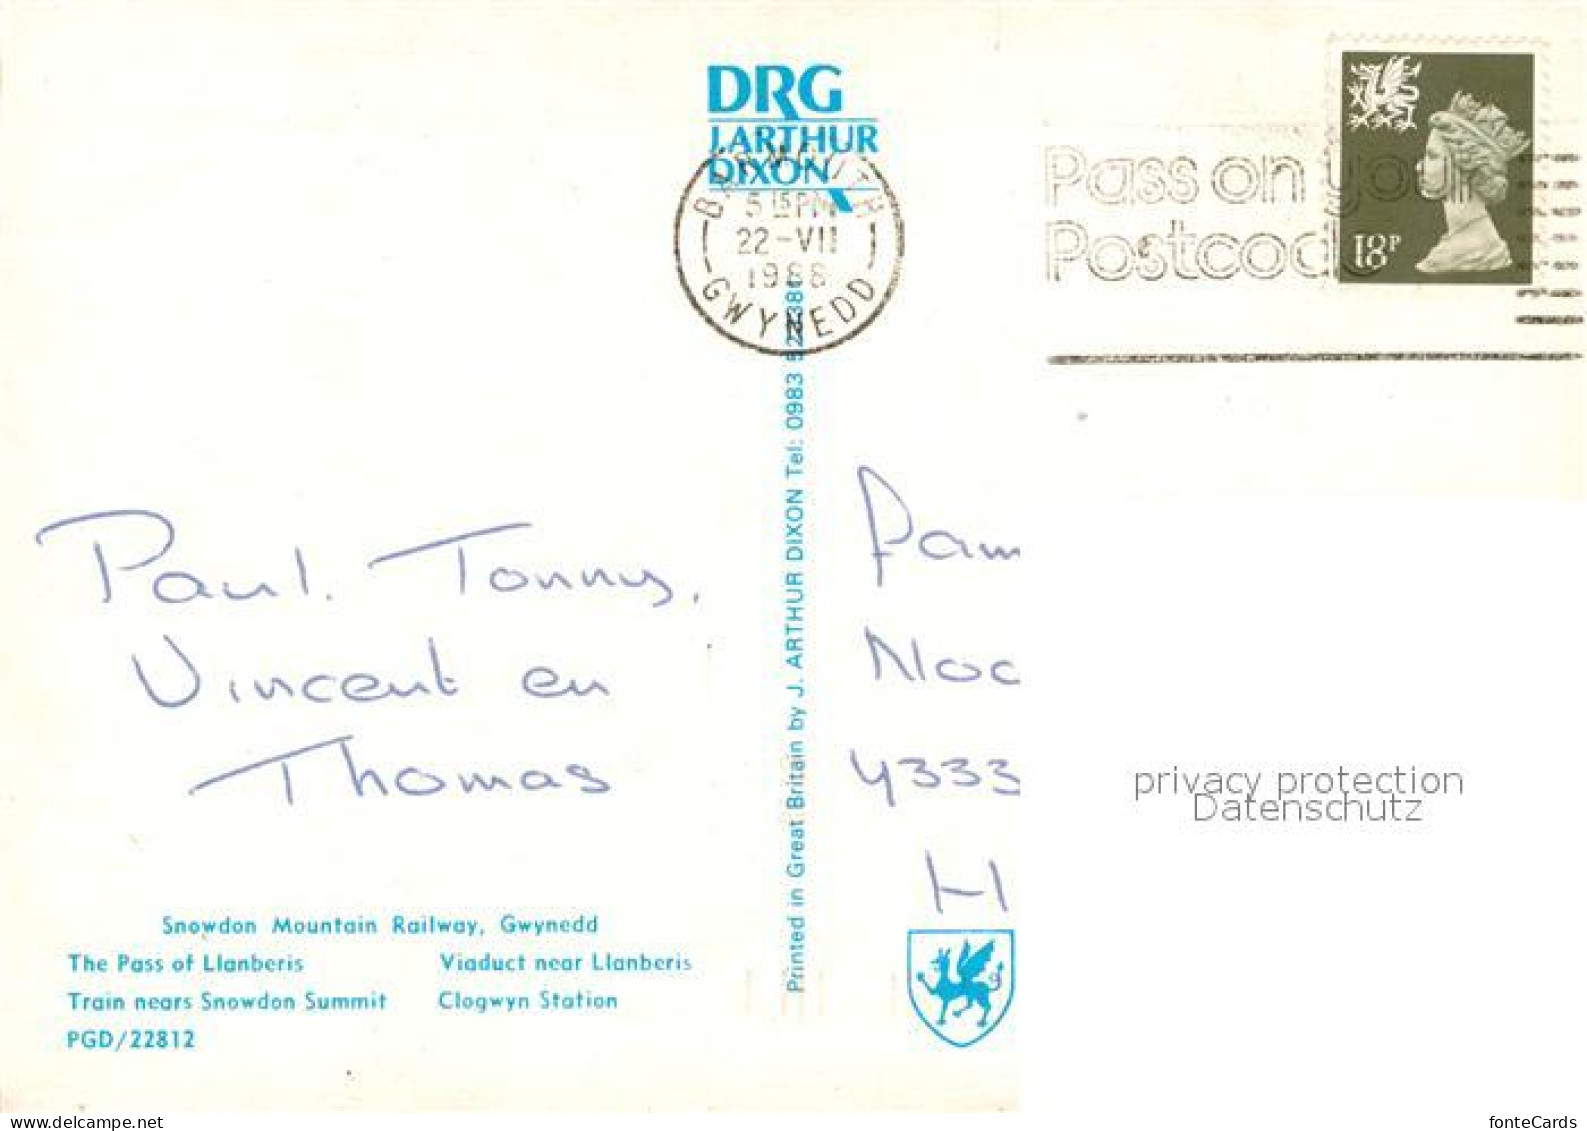 DRG
J.ARTHUR
DIXON
BARMOUTH
5 15 PM
22-VII
1988
GWYNEDD
Pass on your
Postcode
18P
Paul. Tonny,
Vincent en
Thomas
Pam
Noo
4333
H
privacy protection
Datenschutz
Snowdon Mountain Railway, Gwynedd
The Pass of Llanberis Viaduct near Llanberis
Train nears Snowdon Summit Clogwyn Station
PGD/22812
Printed in Great Britain by J. ARTHUR DIXON Tel: 0983
www.delcampe.net
fonteCards